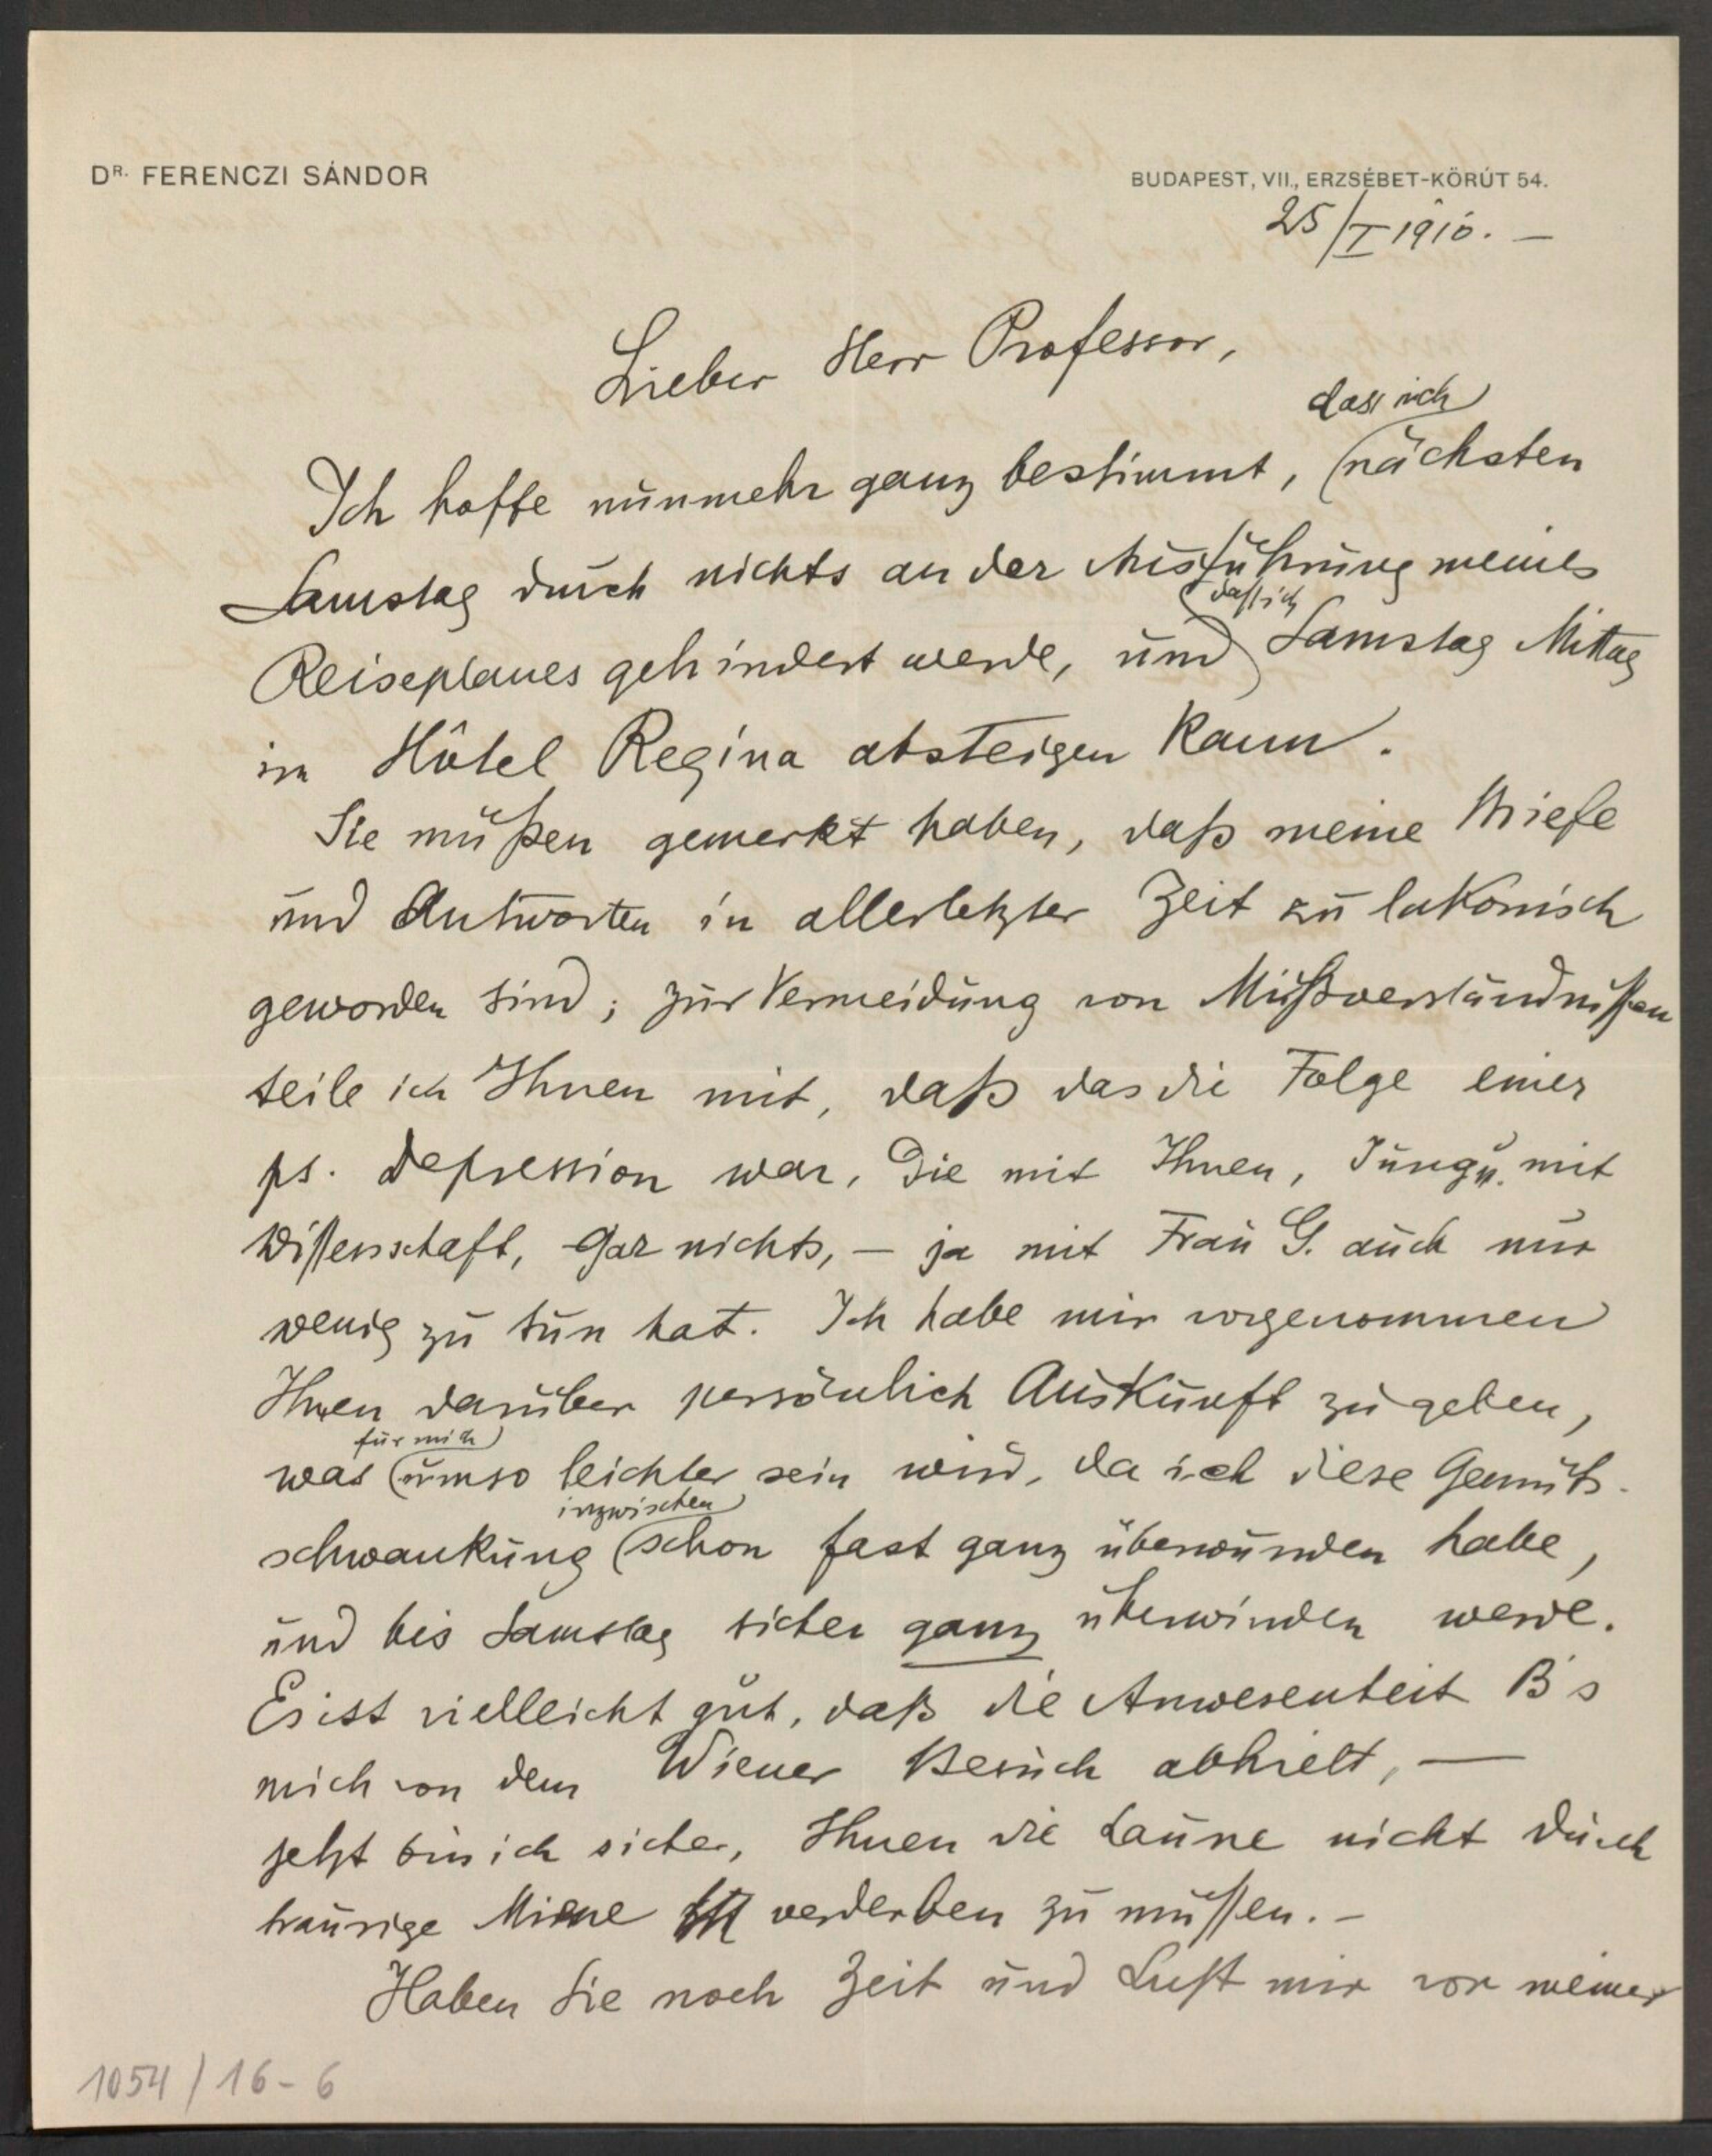 DR. FERENCZI SÁNDOR
BUDAPEST, VII., ERZSÉBET-KÖRÚT 54.
25/I 1910. —
Lieber Herr Professor,
dass ich
Ich hoffe nunmehr ganz bestimmt, nächsten
Samstag durch nichts an der Ausführung meines
daß ich
Reiseplanes gehindert werde, und Samstag Mittag
im Hôtel Regina absteigen kann.
Sie müßen gemerkt haben, daß meine Briefe
und Antworten in allerletzter Zeit zu lakonisch
geworden sind; zur Vermeidung von Mißverständnißen
teile ich Ihnen mit, daß das die Folge einer
ps. Depression war, die mit Ihnen, Jung u. mit
Wißenschaft, gar nichts, — ja mit Frau G. auch nur
wenig zu tun hat. Ich habe mir vorgenommen
Ihnen darüber persönlich Auskunft zu geben,
für mich
was umso leichter sein wird, da ich diese Gemüts-
inzwischen
schwankung schon fast ganz überwunden habe,
und bis Samstag sicher ganz überwinden werde.
Es ist vielleicht gut, daß die Anwesenheit B's
mich von dem Wiener Besuch abhielt, —
jetzt bin ich sicher, Ihnen die Laune nicht durch
traurige Miene verderben zu müssen. —
Haben Sie noch Zeit und Lust mir vor meiner
1054 / 16-6